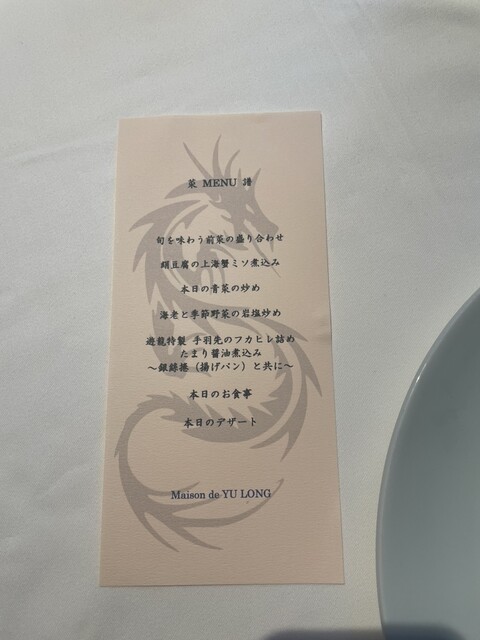 菜 MENU 譜
旬を味わう前菜の盛り合わせ
絹豆腐の上海蟹ミソ煮込み
本日の青菜の炒め
海老と季節野菜の岩塩炒め
遊龍特製 手羽先のフカヒレ詰め
たまり醤油煮込み
～銀絲捲（揚げパン）と共に～
本日のお食事
本日のデザート
Maison de YU LONG